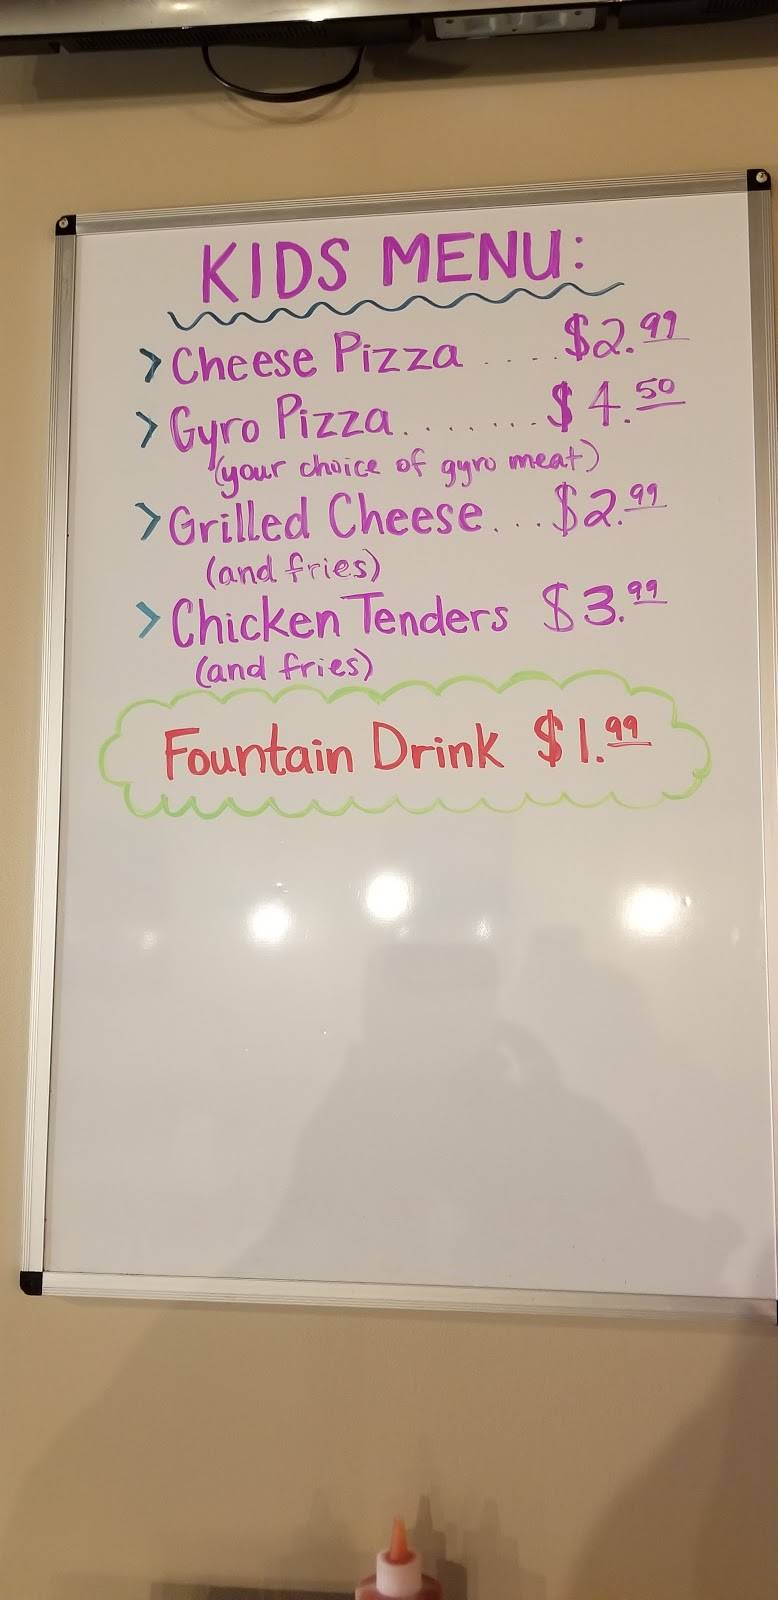 KIDS MENU:
> Cheese Pizza .... $2.99
> Gyro Pizza........ $4.50
(your choice of gyro meat)
> Grilled Cheese... $2.99
(and fries)
> Chicken Tenders $3.99
(and fries)
Fountain Drink $1.99